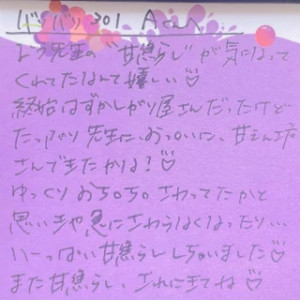 バリバリ301 Aさんへ
よう先生の“甘焦らし”が気になって
くれてたなんて嬉しい♡
終始はずかしがり屋さんだったけど
たっぷり先生に、おっぱいに、甘えん坊
さんできたかは?♡
ゆっくりおち〇ち。さわってたかと
思いきや急にさわらなくなったり…
いーっぱい甘焦らししちゃいました♡
また甘焦らし、されに来てね♡